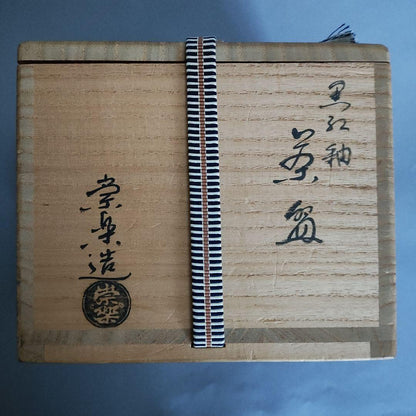 黒紅釉
茶盌
崇楽造
崇楽